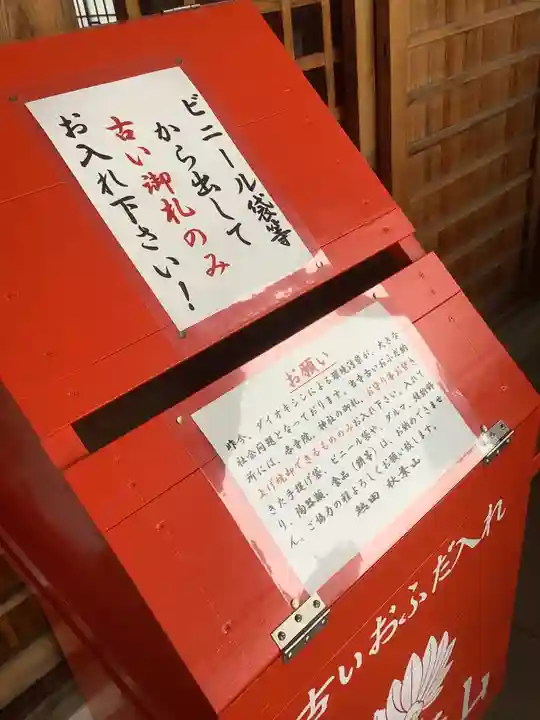 ビニール袋等
から出して
古い御札のみ
お入れ下さい！
お願い
昨今、ダイオキシンによる環境汚染が、大きな
社会問題となっております。当寺古いおふだ納
所には、各寺院、神社の御札、お守り等お焚き
上げ焼却できるもののみお入れ下さい。入れて
きた手提げ袋、ビニール袋や、ダルマ、鏡餅飾
り、陶器類、食品（餅等）は、お納めできませ
ん。ご協力の程よろしくお願い致します。
熱田 秋葉山
古いおふだ入れ
山